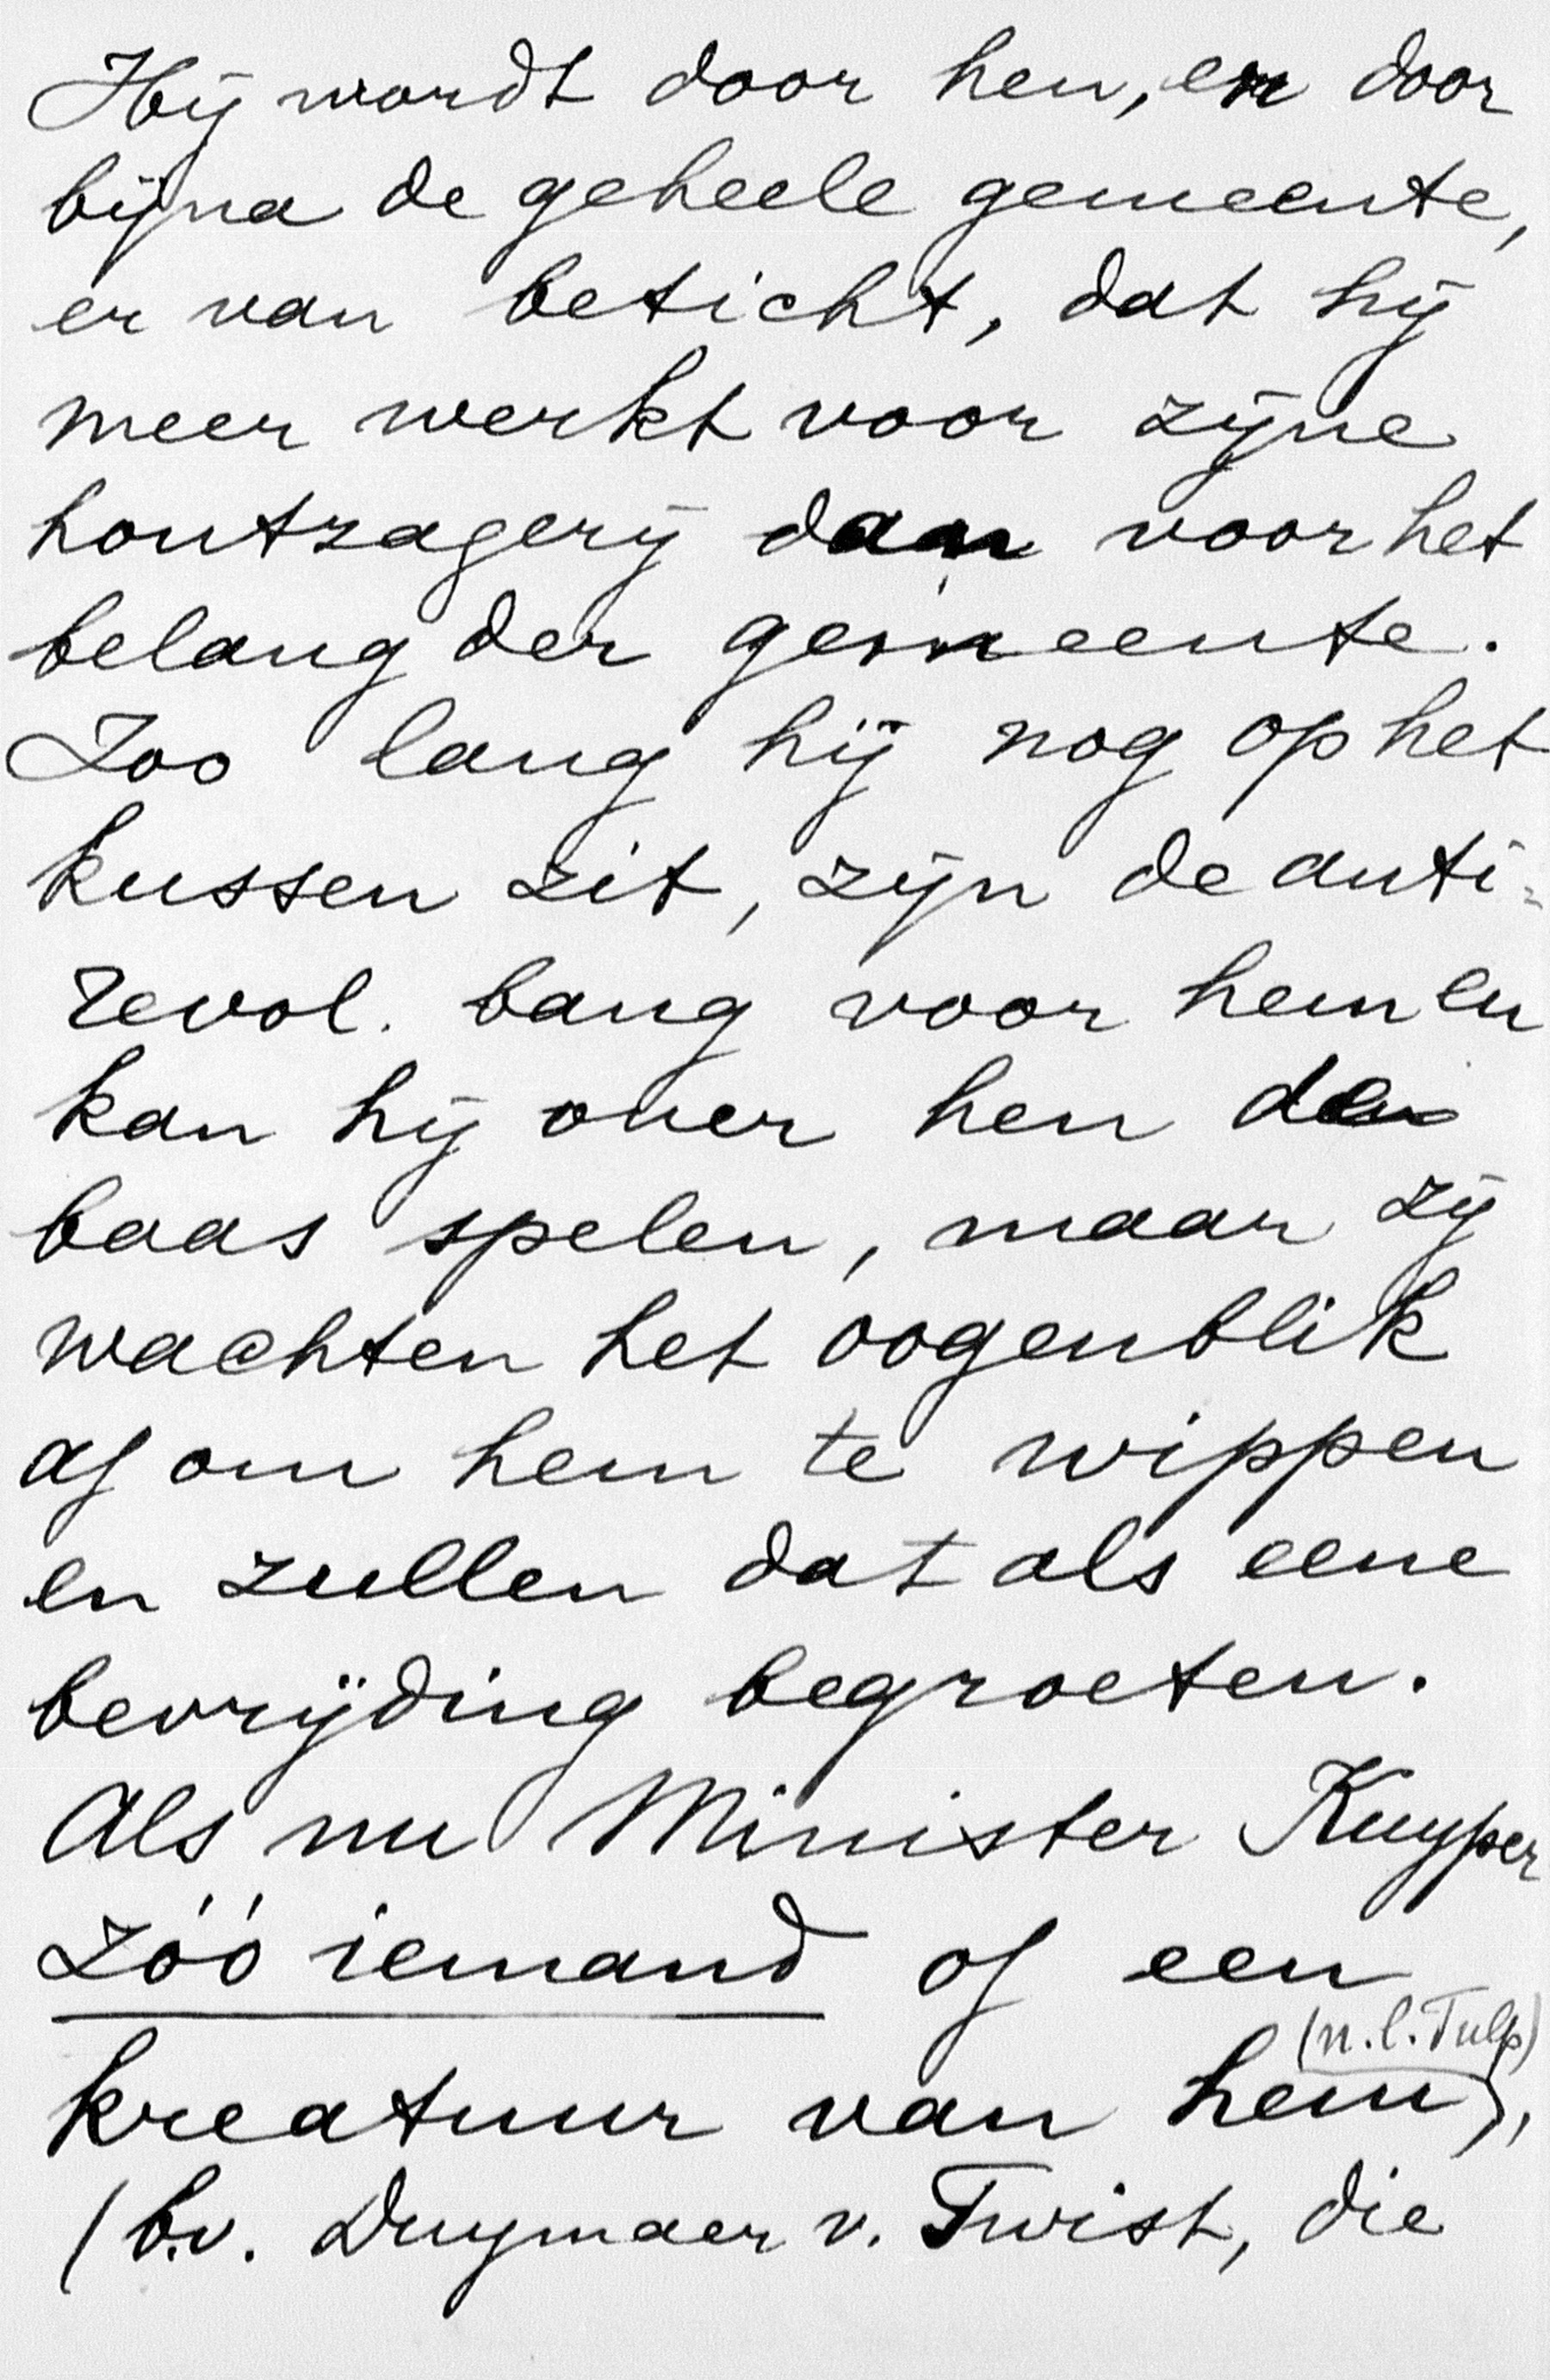 Hij wordt door hen, en door
bijna de geheele gemeente,
er van beticht, dat hij
meer werkt voor zijne
houtzagerij dan voor het
belang der gemeente.
Zoo lang hij nog op het
kussen zit, zijn de anti-
revol. bang voor hem en
kan hij over hen den
baas spelen, maar zij
wachten het oogenblik
af om hem te wippen
en zullen dat als eene
bevrijding begroeten.
Als nu Minister Kuyper
zóó iemand of een
(n.l. Tulp)
kreatuur van hem),
(b.v. Duymaer v. Twist, die